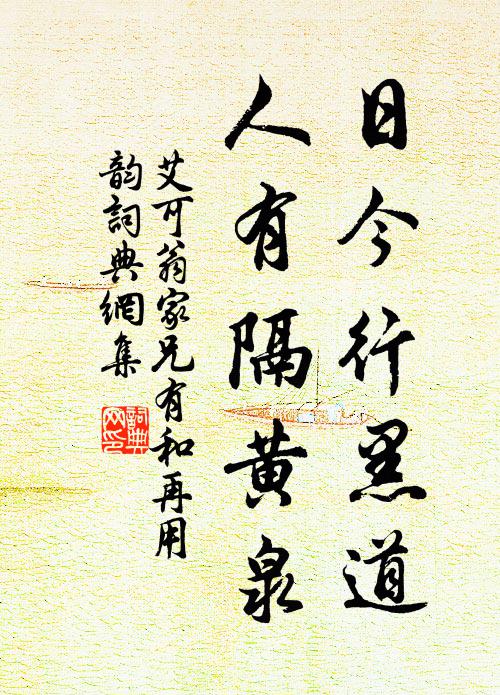 日今行黑道
人有隔黃泉
艾可翁家兄有和再用
韵詞典網集
詞典网印